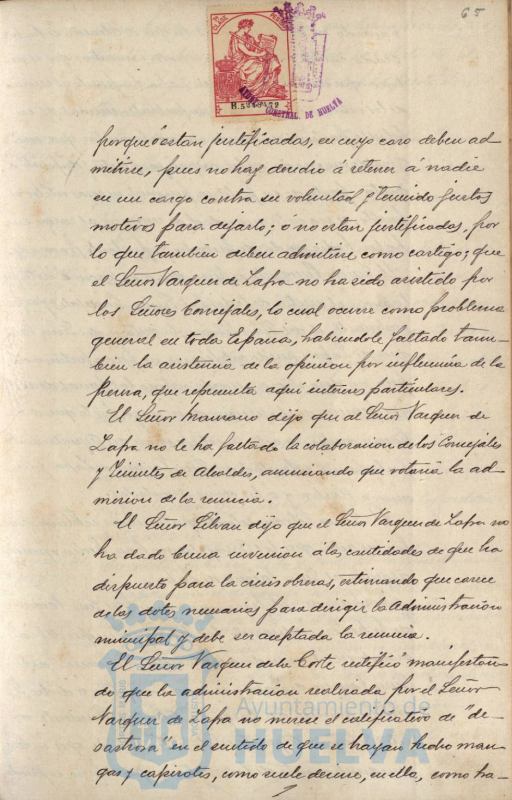 65
B.5
AYUN CONSTNAL. DE HUELVA
porque ó están justificadas, en cuyo caso deben ad-
mitirse, pues no hay derecho á retener á nadie
en un cargo contra su voluntad y teniendo justos
motivos para dejarlo; ó no están justificadas, por
lo que tambien deben admitirse como castigo; que
el Señor Vazquez de Zafra no ha sido asistido por
los Señores Concejales, lo cual ocurre como problema
general en toda España, habiendole faltado tam-
bien la asistencia de la opinion por influencia de la
Prensa, que representa aquí intereses particulares.
El Señor Manzano dijo que al Señor Vazquez de
Zafra no le ha faltado la colaboracion de los Concejales
y Tenientes de Alcaldes, anunciando que votaria la ad-
mision de la renuncia.
El Señor Silvan dijo que el Señor Vazquez de Zafra no
ha dado buena inversion á las cantidades de que ha
dispuesto para la crisis obrera, estimando que carece
de las dotes necesarias para dirigir la Administracion
municipal y debe ser aceptada la renuncia.
El Señor Vazquez de la Corte rectificó manifestan-
do que la administracion realizada por el Señor
Vazquez de Zafra no merece el calificativo de "de-
sastrosa" en el sentido de que se hayan hecho man-
gas y capirotes, como suele decirse, en ella, como ha-
Ayuntamiento de
HUELVA